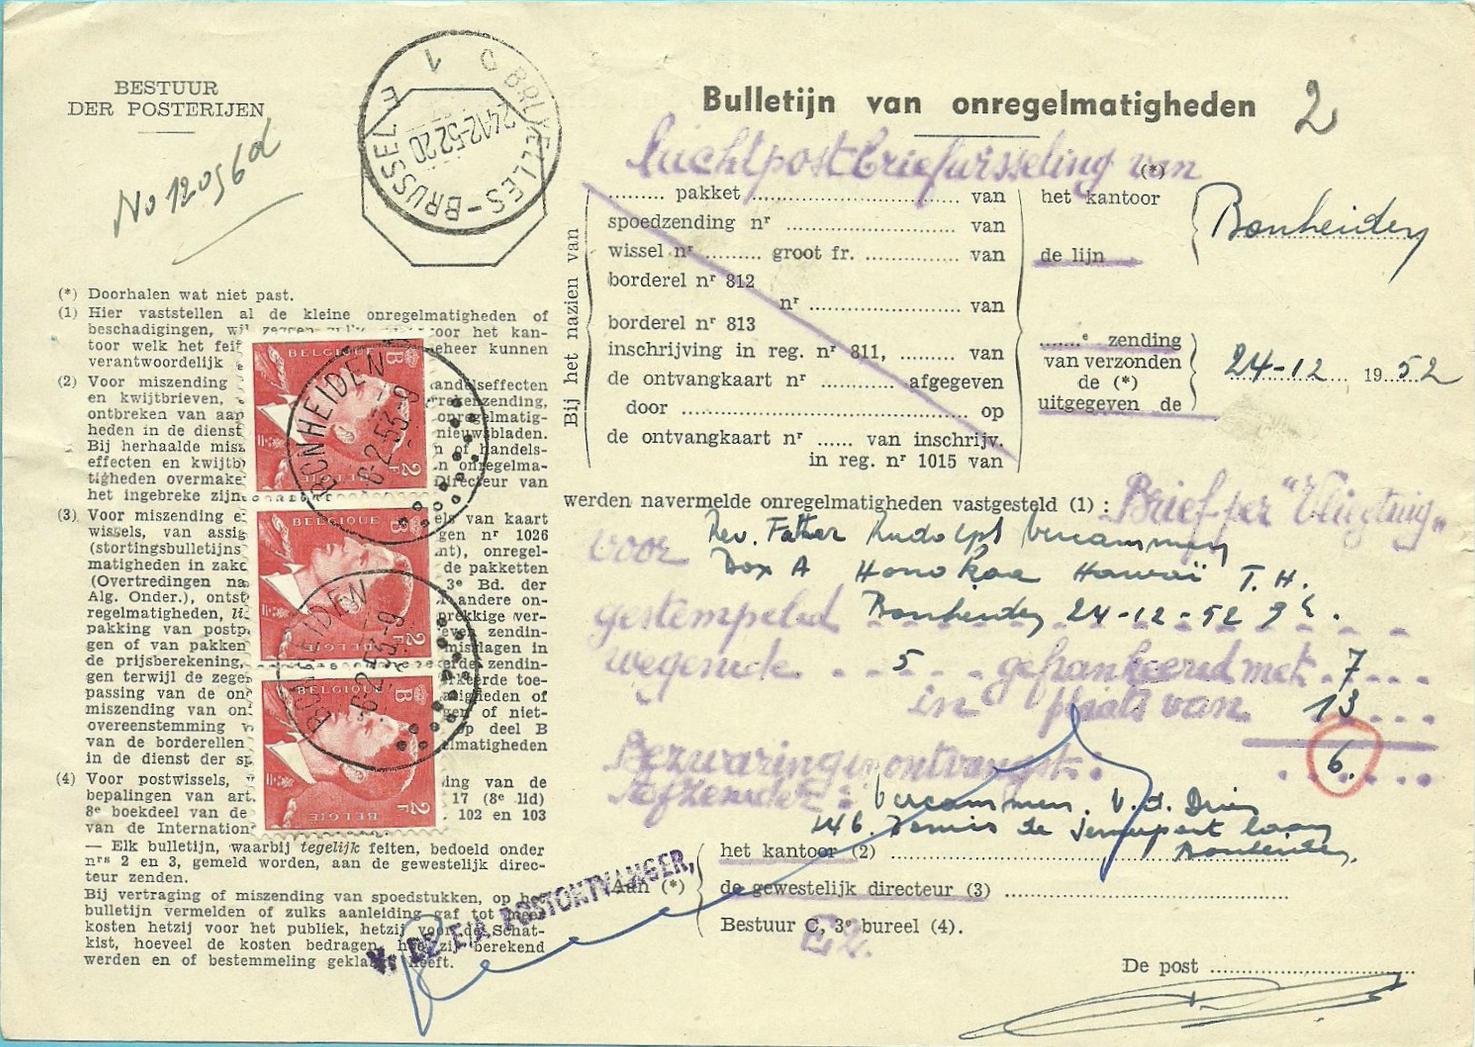 BESTUUR
DER POSTERIJEN
No 12096 d
BRUXELLES-BRUSSEL
24-12-52 20
C 1 E
Bulletijn van onregelmatigheden
2
luchtpostbriefwisseling van
(*)
Bij het nazien van
......... pakket ........................ van
spoedzending nr ........................ van
wissel nr ......... groot fr. ............. van
borderel nr 812
nr .................... van
borderel nr 813
inschrijving in reg. nr 811, ......... van
de ontvangkaart nr ........... afgegeven
door ........................................ op
de ontvangkaart nr ...... van inschrijv.
in reg. nr 1015 van
het kantoor
de lijn
Bonheiden
.......e zending
van verzonden
de (*)
uitgegeven de
24-12 1952
werden navermelde onregelmatigheden vastgesteld (1) :
Brief per "Vliegtuig"
voor Rev. Father Rudolph Vercammen
Box A Honokaa Hawaï T. H.
gestempeled Bonheiden 24-12-52
wegende 5 gefrankeerd met 7
in plaats van 13
6.
Bezwaringen ontvangst:
Afzender: Vercammen. V. d.
146. de laan
Bonheiden.
Aan (*)
het kantoor (2) ........................
de gewestelijk directeur (3) ........................
Bestuur C, 3e bureel (4).
E2.
De post ........................
V. DE E/A POSTONTVANGER,
(*) Doorhalen wat niet past.
(1) Hier vaststellen al de kleine onregelmatigheden of
beschadigingen, wil zeggen zulke voor het kan-
toor welk het feit beheer kunnen
verantwoordelijk
(2) Voor miszending handelseffecten
en kwijtbrieven,
ontbreken van aan onregelmatig-
heden in de dienst nieuwsbladen.
Bij herhaalde miss of handels-
effecten en kwijtb n onregelma-
tigheden overmake Directeur van
het ingebreke zijn
(3) Voor miszending e els van kaart
wissels, van assig gen nr 1026
(stortingsbulletijns nt), onregel-
matigheden in zake de pakketten
(Overtredingen na 3e Bd. der
Alg. Onder.), ontst andere on-
regelmatigheden, li rekkige ver-
pakking van postp even zendin-
gen of van pakken mislagen in
de prijsberekening, eerde zendin-
gen terwijl de zegel keerde toe-
passing van de on igheden of
miszending van on gen of niet-
overeenstemming op deel B
van de borderellen elmatigheden
in de dienst der sp
(4) Voor postwissels, ing van de
bepalingen van art. 17 (8e lid)
8e boekdeel van de 102 en 103
van de Internation
— Elk bulletijn, waarbij tegelijk feiten, bedoeld onder
nrs 2 en 3, gemeld worden, aan de gewestelijk direc-
teur zenden.
Bij vertraging of miszending van spoedstukken, op het
bulletijn vermelden of zulks aanleiding gaf tot meer
kosten hetzij voor het publiek, hetzij voor de Schat-
kist, hoeveel de kosten bedragen, hoe zij berekend
werden en of bestemmeling geklaagd heeft.
BELGIQUE
B
2F
BELGIE
BONHEIDEN
6-2-53-9
BELGIQUE
B
2F
BONHEIDEN
6-2-53-9
BELGIQUE
B
2F
BELGIE